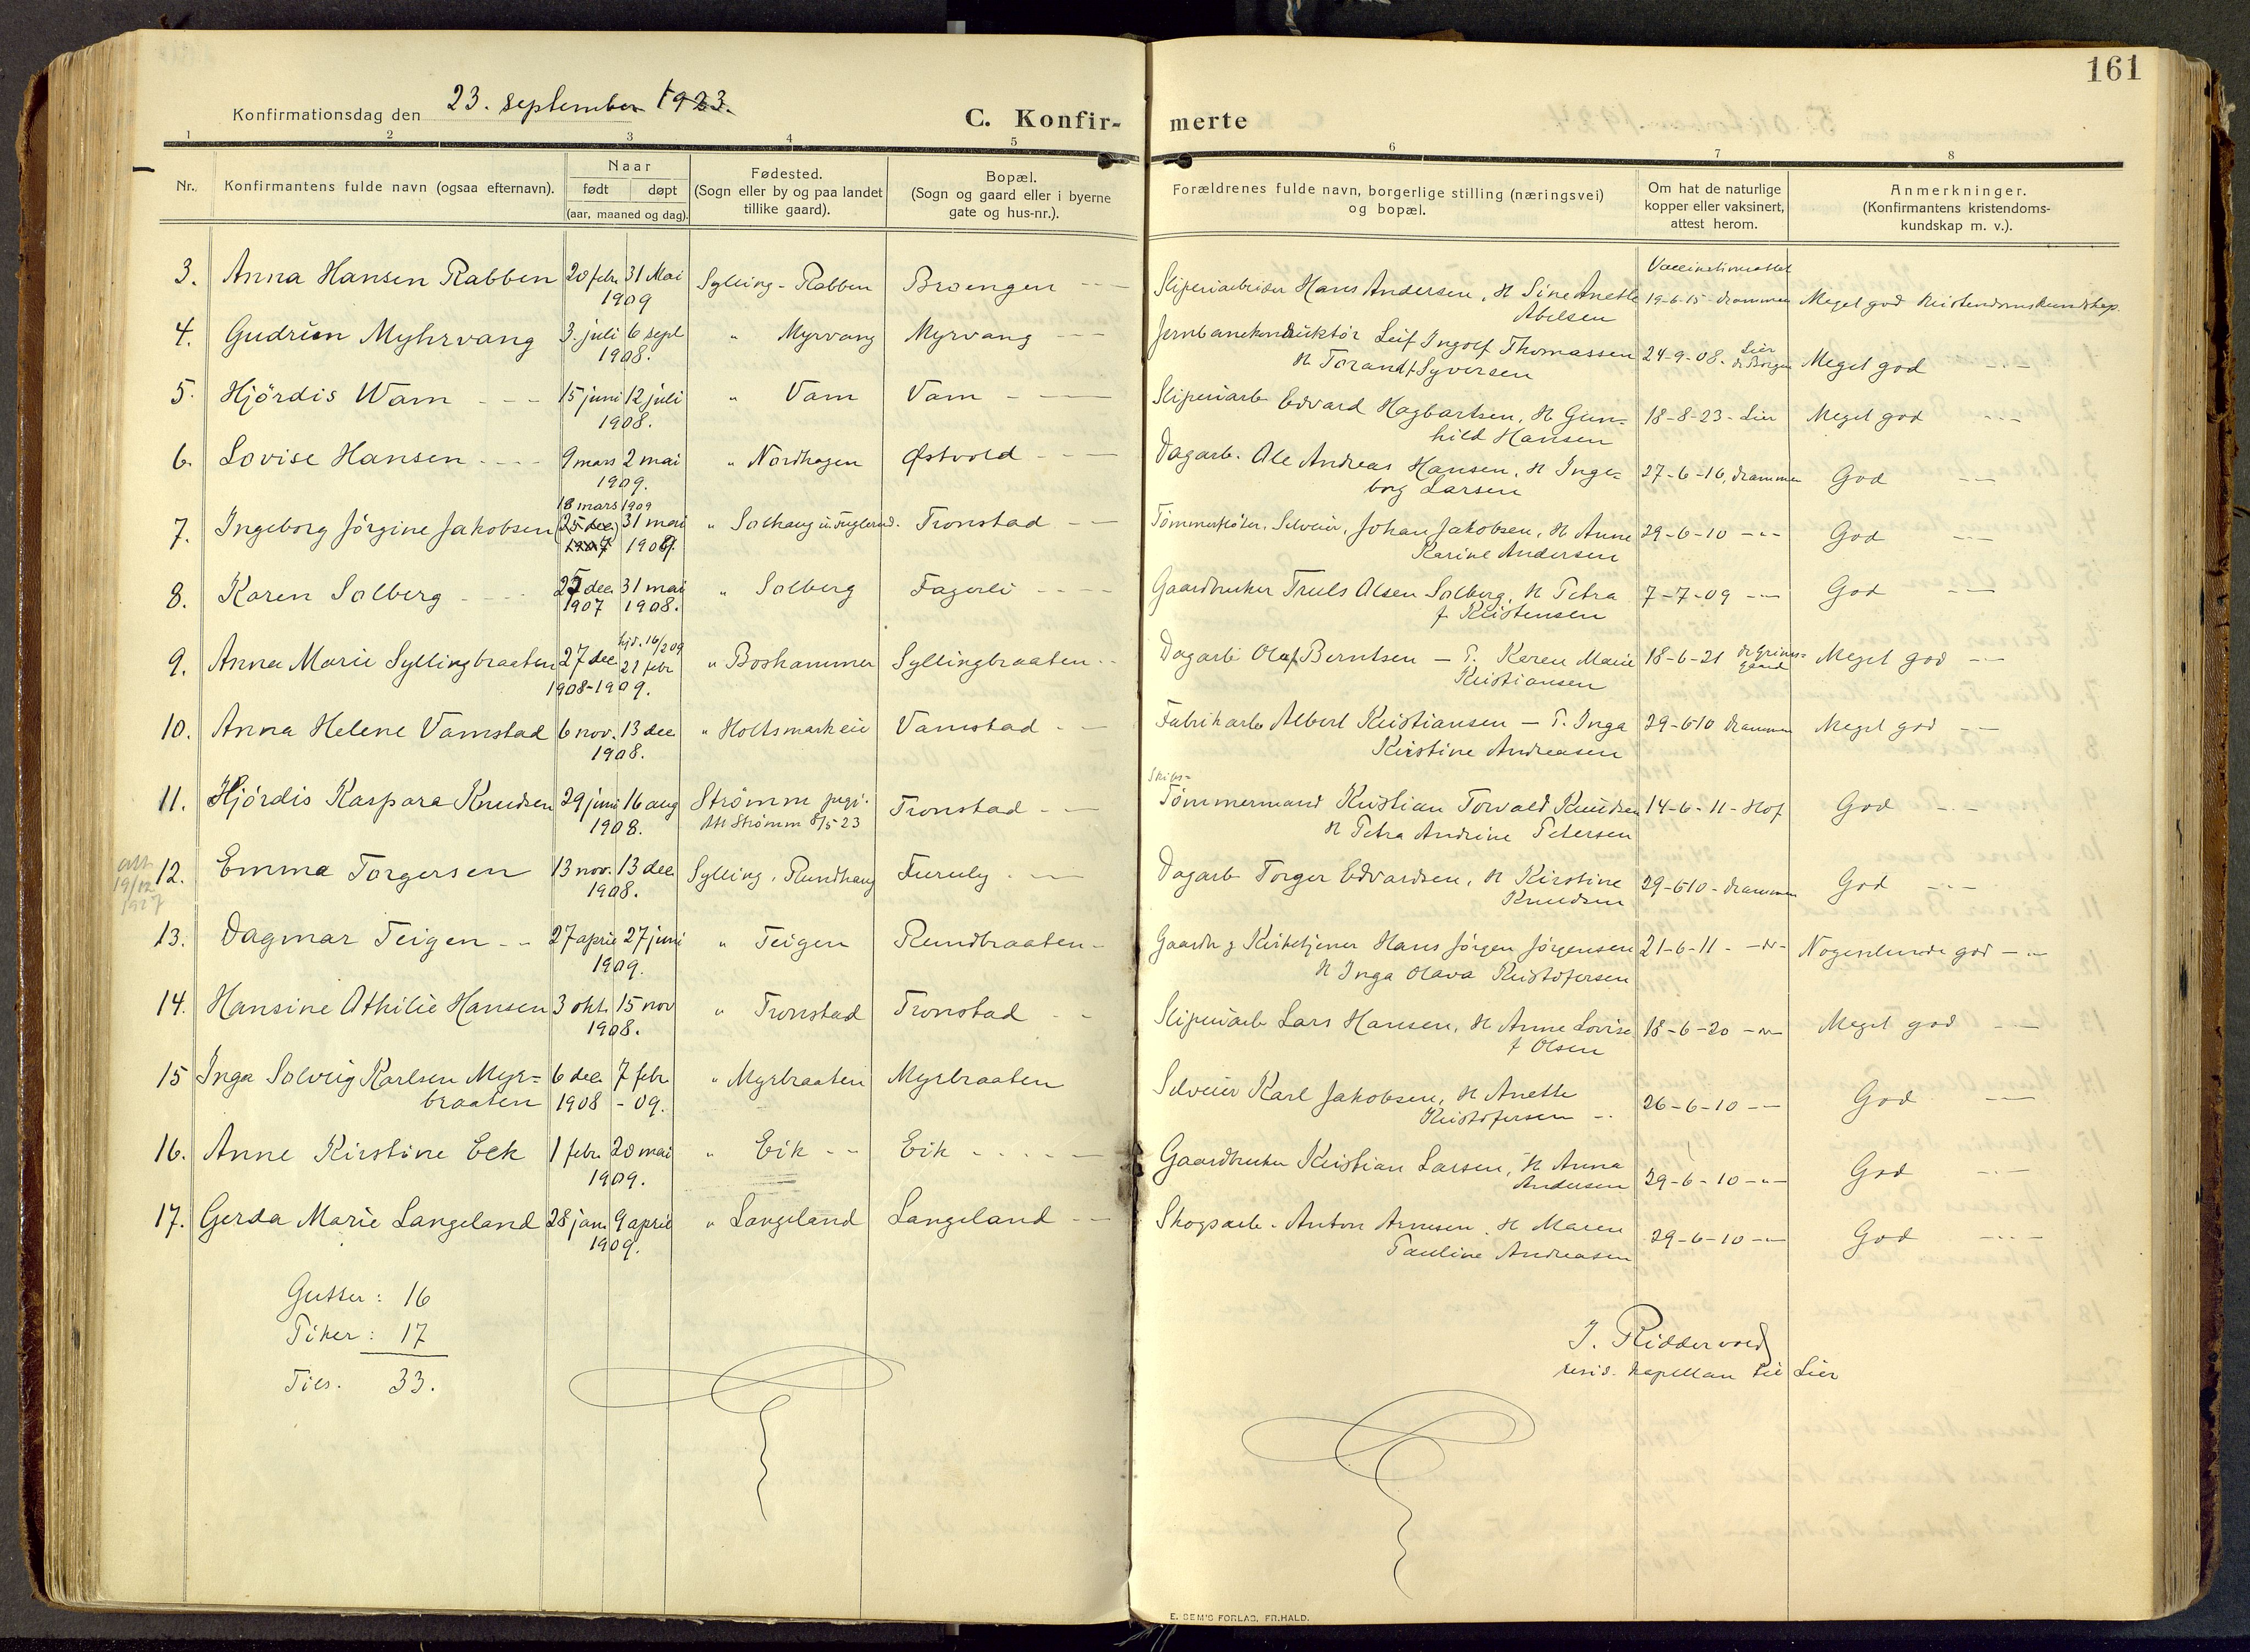 161
Konfirmationsdag den 23. september 1923.
C. Konfir- merte
1 2 3 4 5 6 7 8
Nr.
Konfirmantens fulde navn (ogsaa efternavn).
Naar
født døpt
(aar, maaned og dag).
Fødested.
(Sogn eller by og paa landet
tillike gaard).
Bopæl.
(Sogn og gaard eller i byerne
gate og hus-nr.).
Forældrenes fulde navn, borgerlige stilling (næringsvei)
og bopæl.
Om hat de naturlige
kopper eller vaksinert,
attest herom.
Anmerkninger.
(Konfirmantens kristendoms-
kundskap m. v.).
3. Anna Hansen Rabben 20 febr. 31 Mai Sylling - Rabben Broengen Sliperiarbeider Hans Andersen, H Sine Anette 19-6-15 - Drammen Meget god Kristendomskundskap.
1909 Abelsen
4. Gudrun Myhrvang 3. juli 6 sept " Myrvang Myrvang Jernbanekonduktør Leif Ingolf Thomassen 24-9-08. Lier Meget god
1908. H Torand f Syversen dr Borgen
5. Hjördis Wam 15 juni 12 juli " Vam Vam Sliperiarb Edvard Hagbartsen, H Gun= 18-8-23 - Lier Meget god
1908. hild Hansen
6. Lovise Hansen 9 mars 2 mai " Nordhagen Østvold Dagarb. Ole Andreas Hansen, H Inge= 27-6-16, Drammen God
1909. borg Larsen
18 mars 1909
7. Ingeborg Jörgine Jakobsen (25 dec.) 31 mai " Solhaug u. Fuglerud. Tronstad Tömmerfløter, Selveier, Johan Jakobsen, H Anne 29-6-10 -"- God
1907 1909. Karine Andersen
8. Karen Solberg 25 dec. 31 mai " Solberg Fagerli Gaardbruker Truls Olsen Solberg, H Petra 7-7-09 -"- God
1907 1908. f Kristensen
hjd. 16/2 09
9. Anna Marie Syllingbraaten 27 dec 21 febr " Boskammer Syllingbraaten Dagarb Olaf Berntsen - P. Karen Marie 18-6-21 dr Grims= Meget god
1908-1909. Kristiansen gaard
10. Anna Helene Vamstad 6 nov. 13 dec " Holtsmark eie Vamstad Fabrikarb Albert Kristiansen - P. Inga 29-6 10 Drammen Meget god
1908. Kirstine Andreasen
Skibs=
11. Hjördis Kaspara Knudsen 29 juni 16 aug Strømm Tronstad Tömmermand Kristian Torvald Knudsen 14-6-11 - Hof God
1908. Att Strømm 8/5 23 H Petra Andrine Petersen
att. 19/12 1927
12. Emma Torgersen 13 nov. 13 dec Sylling, Rundhaug Furuly Dagarb Torger Edvardsen, H Kirstine 29-6 10 - Drammen God
1908. Knudsen
13. Dagmar Teigen 27 april 27 juni " Teigen Rundbraaten Gaardbr g Kirketjener Hans Jörgen Jörgensen 21-6-11 - -"- Nogenlunde god
1909. H Inga Olava Kristofersen
14. Hansine Othilie Hansen 3 okt. 15 nov " Tronstad Tronstad Sliperiarb Lars Hansen, H Anne Lovise 18-6-20 -"- Meget god
1908. f Olsen
15 Inga Solveig Karlsen Myr= 6 dec. 7 febr " Myrbraaten Myrbraaten Selveier Karl Jakobsen, H Anette 26-6-10 -"- God
braaten 1908 - 09. Kristofersen
16. Anne Kirstine Eek 1 febr. 20 mai " Eik Eik Gaardbruker Kristian Larsen, H Anna 29-6-10 -"- God
1909. Andersen
17. Gerda Marie Langeland 28 jan. 9 april " Langeland Langeland Skogsarb. Anton Arnesen, H Maren 29-6-10 -"- God
1909. Pauline Andreasen
Gutter: 16
Piker: 17
Tils. 33.
J. Riddervold
resid. kapellan til Lier
E. SEM'S FORLAG, FR.HALD.